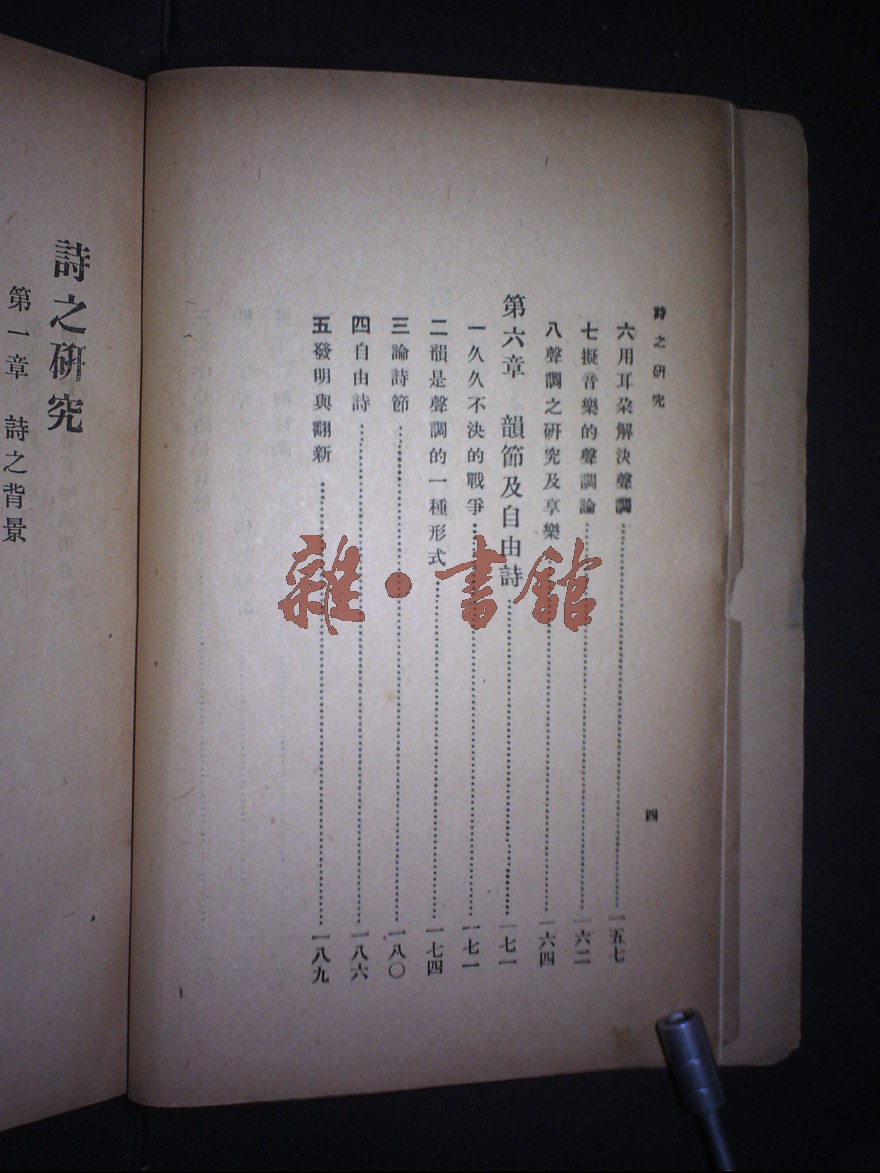 詩之研究
四
六 用耳朵解決聲調……一五七
七 擬音樂的聲調論……一六二
八 聲調之研究及享樂……一六四
第六章 韻節及自由詩……一七一
一 久久不決的戰爭……一七一
二 韻是聲調的一種形式……一七四
三 論詩節……一八〇
四 自由詩……一八六
五 發明與翻新……一八九
詩之研究
第一章 詩之背景
雜·書館